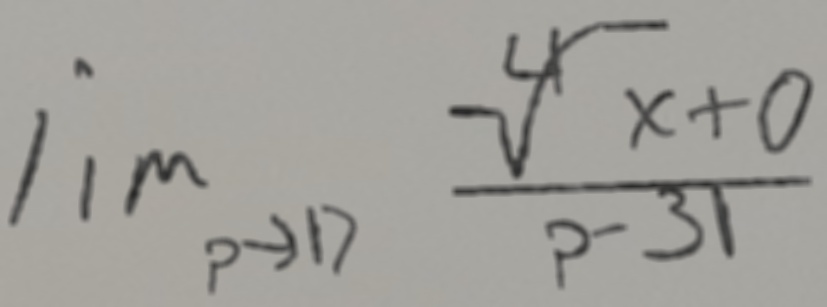 \lim_{p \to 17} \frac{\sqrt[4]{x+0}}{p-31}